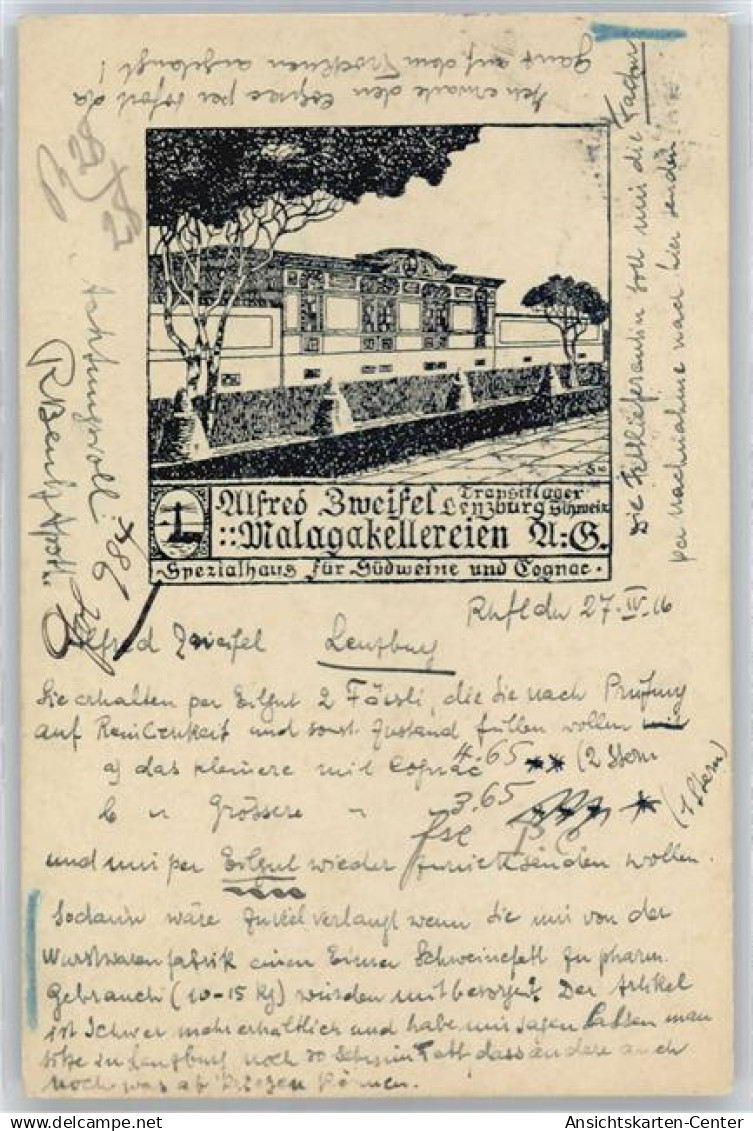 Ich erwarte den Cognac per sofort da
ganz auf dem Trocknen angelangt!
Die Fettlieferantin soll mir die Factur
per Nachnahme nach hier senden
Alfred Zweifel Transitlager
Lenzburg Schweiz
::Malagakellereien A:G.
·Spezialhaus für Südweine und Cognac·
Rhflden 27·IV·16
Alfred Zweifel Lenzburg
Sie erhalten per Eilgut 2 Fässli, die Sie nach Prüfung
auf Reinlichkeit und sonst. Zustand füllen wollen
a) das kleinere mit Cognac 4.65 ** (2 Stern
b " Grössere " 3.65 * (1 Stern)
und mir per Eilgut wieder zurücksenden wollen.
Sodann wäre zuviel verlangt wenn Sie mir von der
Wurstwarenfabrik einen Eimer Schweinefett zu pharm.
Gebrauch (10-15 kg) würden mitbesorgen? Der Artikel
ist schwer mehr erhältlich und habe mir sagen lassen man
in Lenzburg noch so dass andere auch
noch was ab kriegen können.
Achtungsvoll